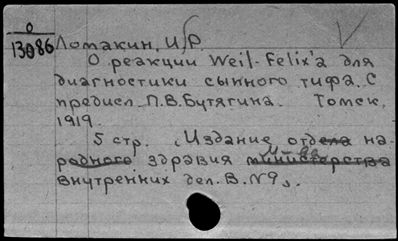 0
13086
Ломакин, И. Р.
О реакции Weil-Felix'а для
диагностики сыпного тифа. С
предисл. П.В.Бутягина. Томск,
1919.
5 стр. (Издание отдела на-
родного здравия министерства
М-ва
внутренних дел. В. №9).